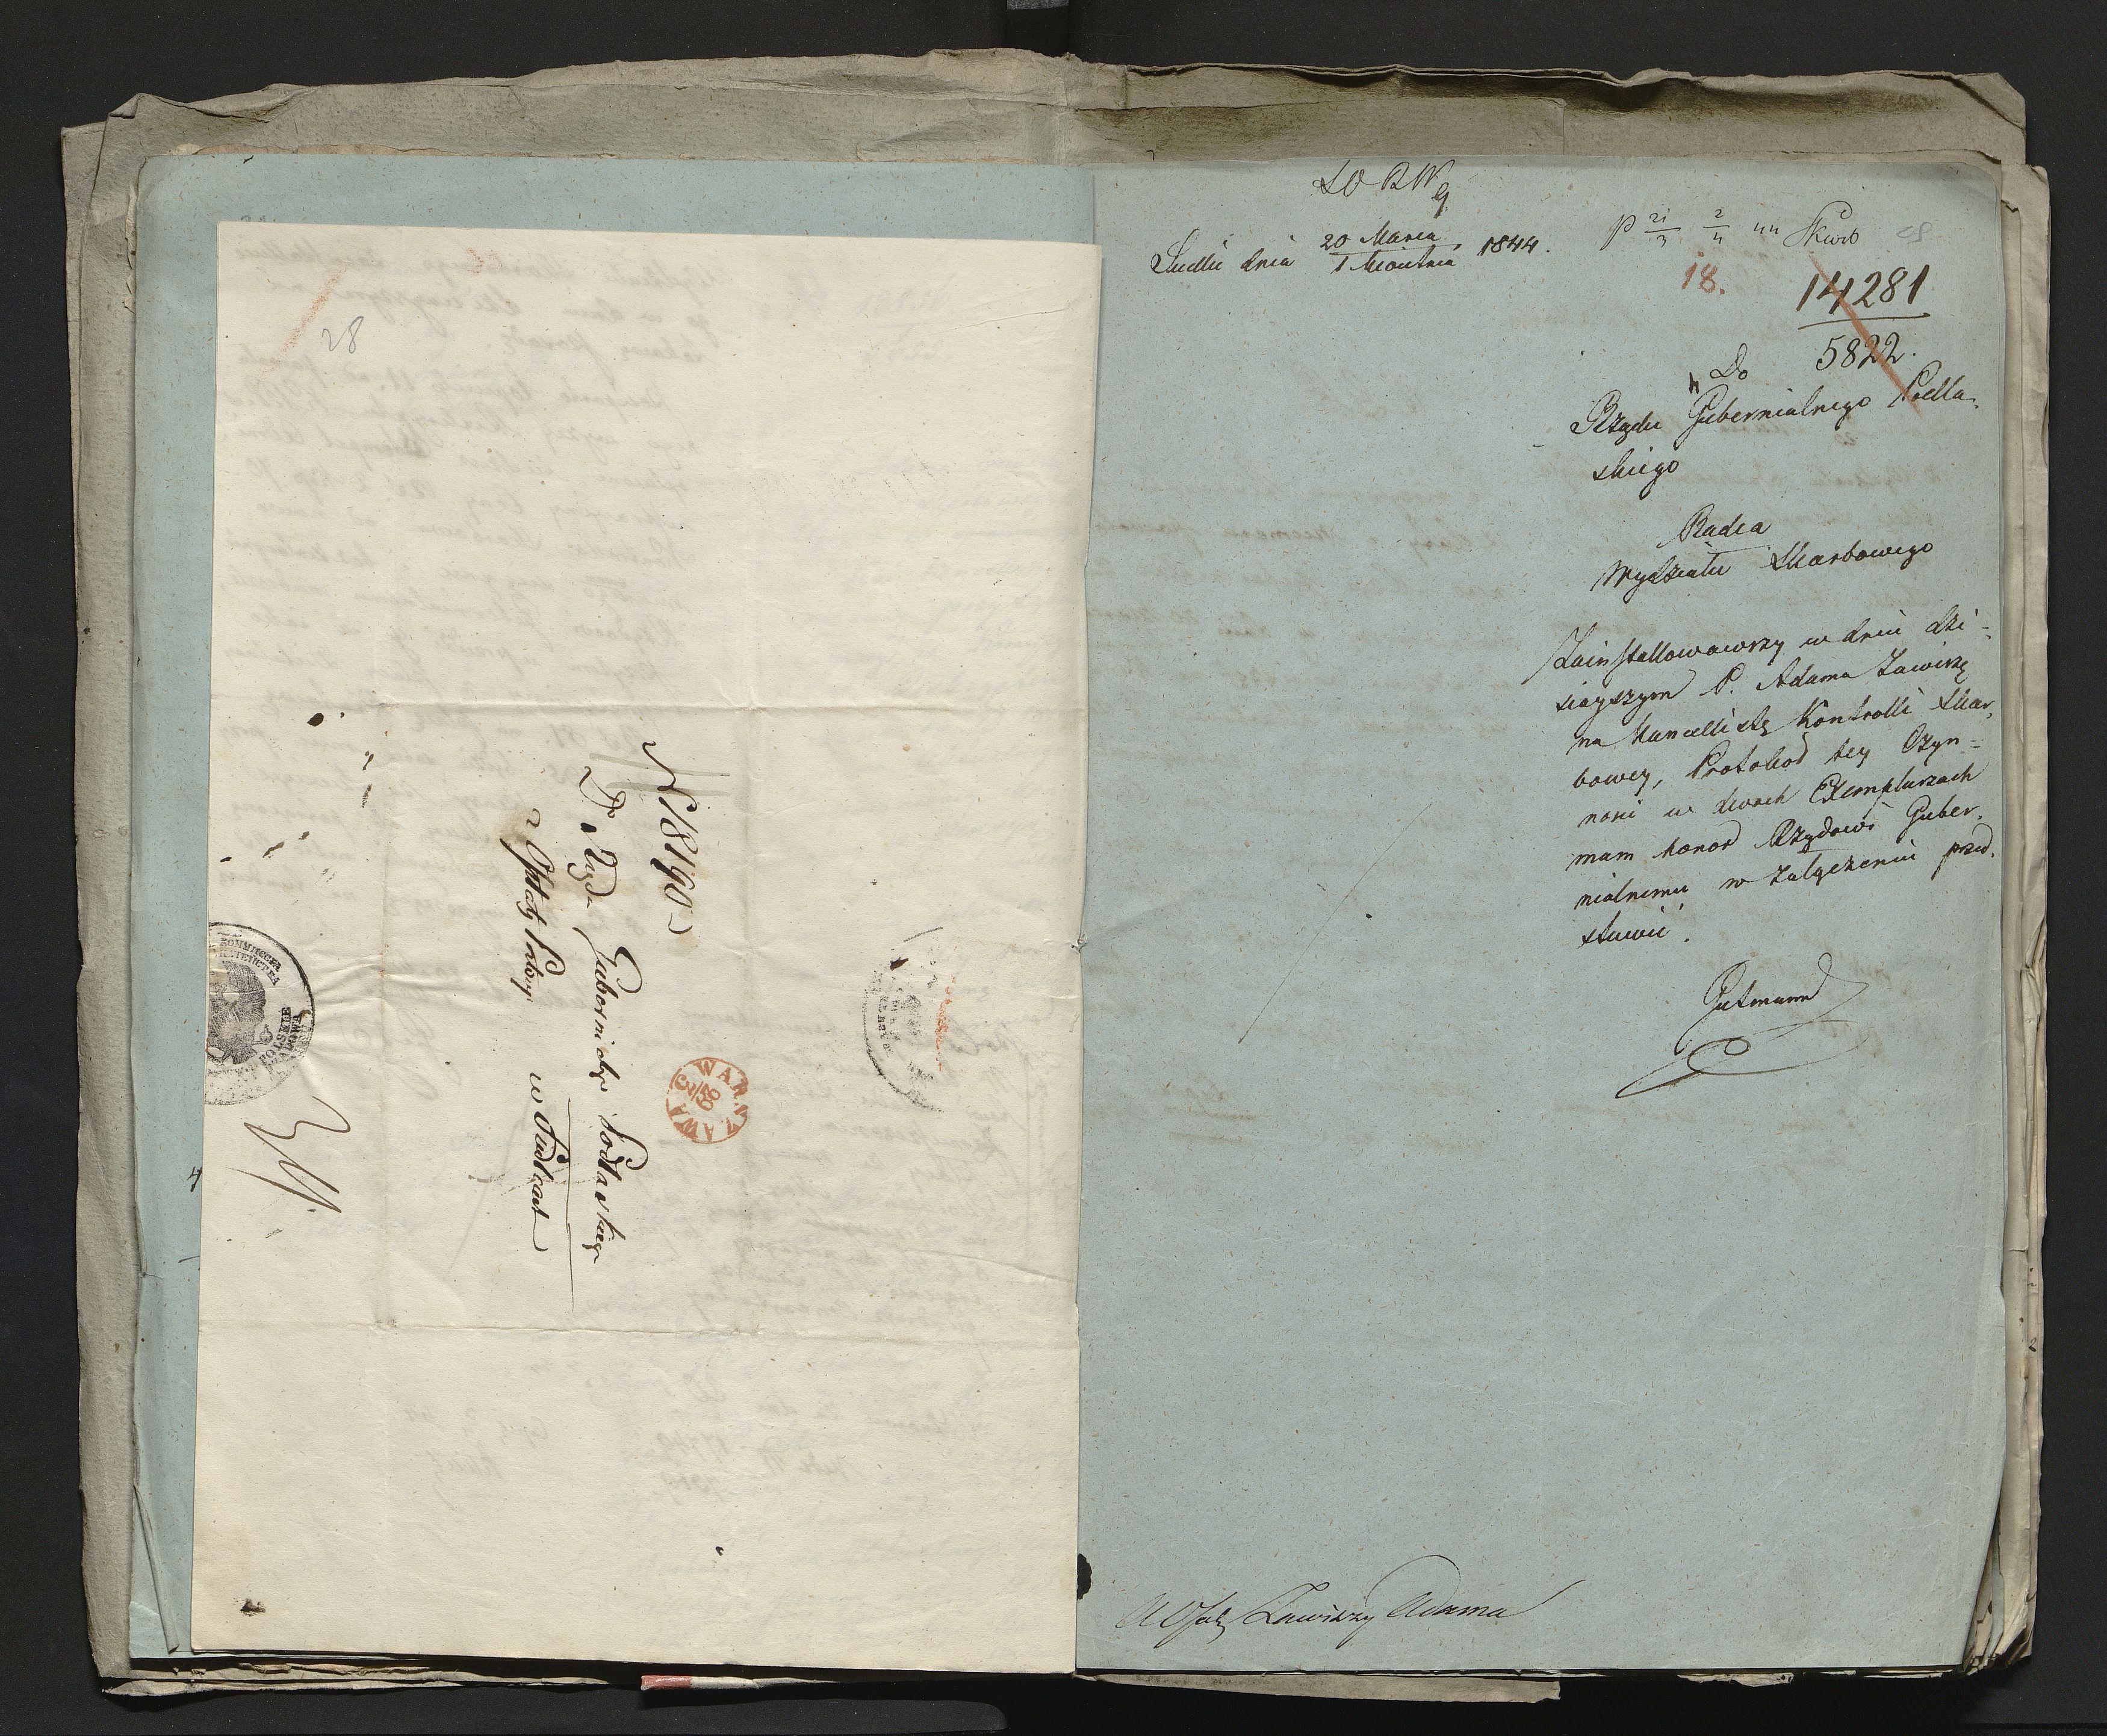 28
N 18190
Do Rządu Gubernialnego Podlaskiego
z Opłatą Portoryi w Siedlcach
WARSZAWA
28/3
POLSKIE
Siedlce dnia 20 Marca / 1 Kwietnia 1844.
P 21/3 2/4 44 Skarb
18.
14281
5822.
Do
Rządu Gubernialnego Podla-
skiego
Radca
Wydziału Skarbowego
Zainstallowawszy w dniu dzi-
sieyszym P. Adama Zawiszę
na Kancellistę Kontrolli Skar-
bowey, Protokoł tey Czyn-
ności w dwóch Exemplarzach
mam honor Rządowi Guber-
nialnemu w załączeniu przed-
stawić.
Gutmann
Zawiszy Adama